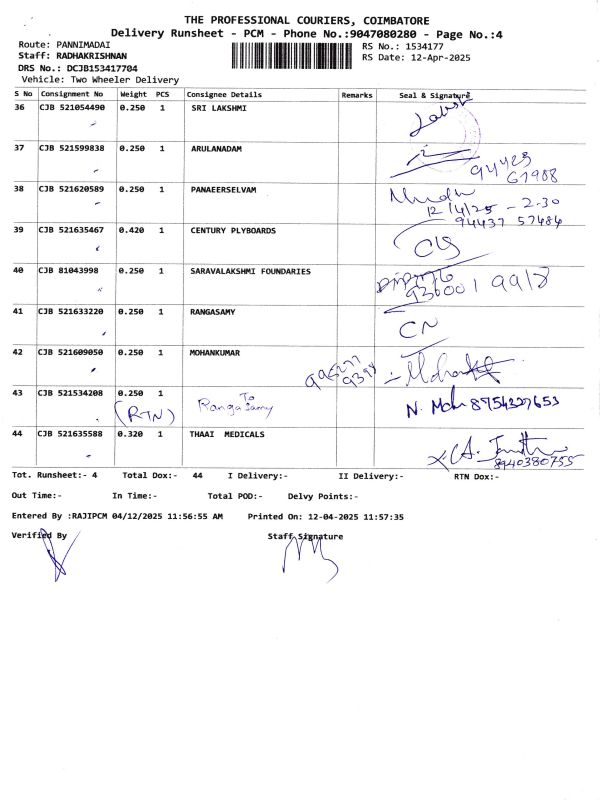 THE PROFESSIONAL COURIERS, COIMBATORE
Delivery Runsheet - PCM - Phone No.:9047080280 - Page No.:4
Route: PANNIMADAI
RS No.: 1534177
Staff: RADHAKRISHNAN
RS Date: 12-Apr-2025
DRS No.: DCJB153417704
Vehicle: Two Wheeler Delivery
S No Consignment No Weight PCS Consignee Details Remarks Seal & Signature
36 CJB 521054490 0.250 1 SRI LAKSHMI
37 CJB 521599838 0.250 1 ARULANADAM
94423
61908
38 CJB 521620589 0.250 1 PANAEERSELVAM
12/4/25 - 2.30
94437 57484
39 CJB 521635467 0.420 1 CENTURY PLYBOARDS
40 CJB 81043998 0.250 1 SARAVALAKSHMI FOUNDARIES
930001 9918
41 CJB 521633220 0.250 1 RANGASAMY
CN
42 CJB 521609050 0.250 1 MOHANKUMAR
43 CJB 521534208 0.250 1
(RTN) To Ranga Samy
8754327653
44 CJB 521635588 0.320 1 THAAI MEDICALS
8940380755
Tot. Runsheet:- 4 Total Dox:- 44 I Delivery:- II Delivery:- RTN Dox:-
Out Time:- In Time:- Total POD:- Delvy Points:-
Entered By :RAJIPCM 04/12/2025 11:56:55 AM Printed On: 12-04-2025 11:57:35
Verified By Staff Signature